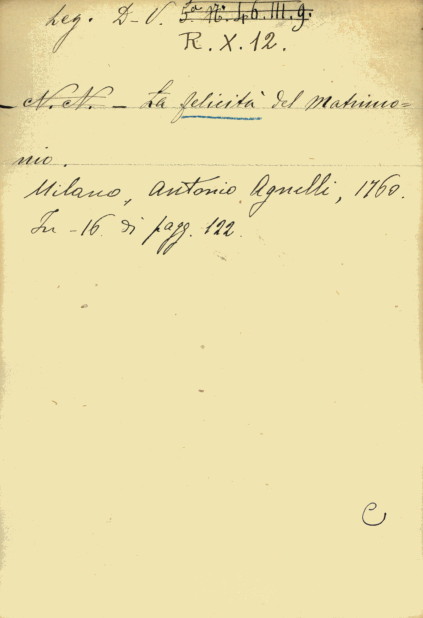 Leg. D-V. 5ª N. 46. III. g.
R. X. 12.
- N. N. - La felicità del Matrimo=
nio.
Milano, Antonio Agnelli, 1760.
In -16 di pagg. 122.
C